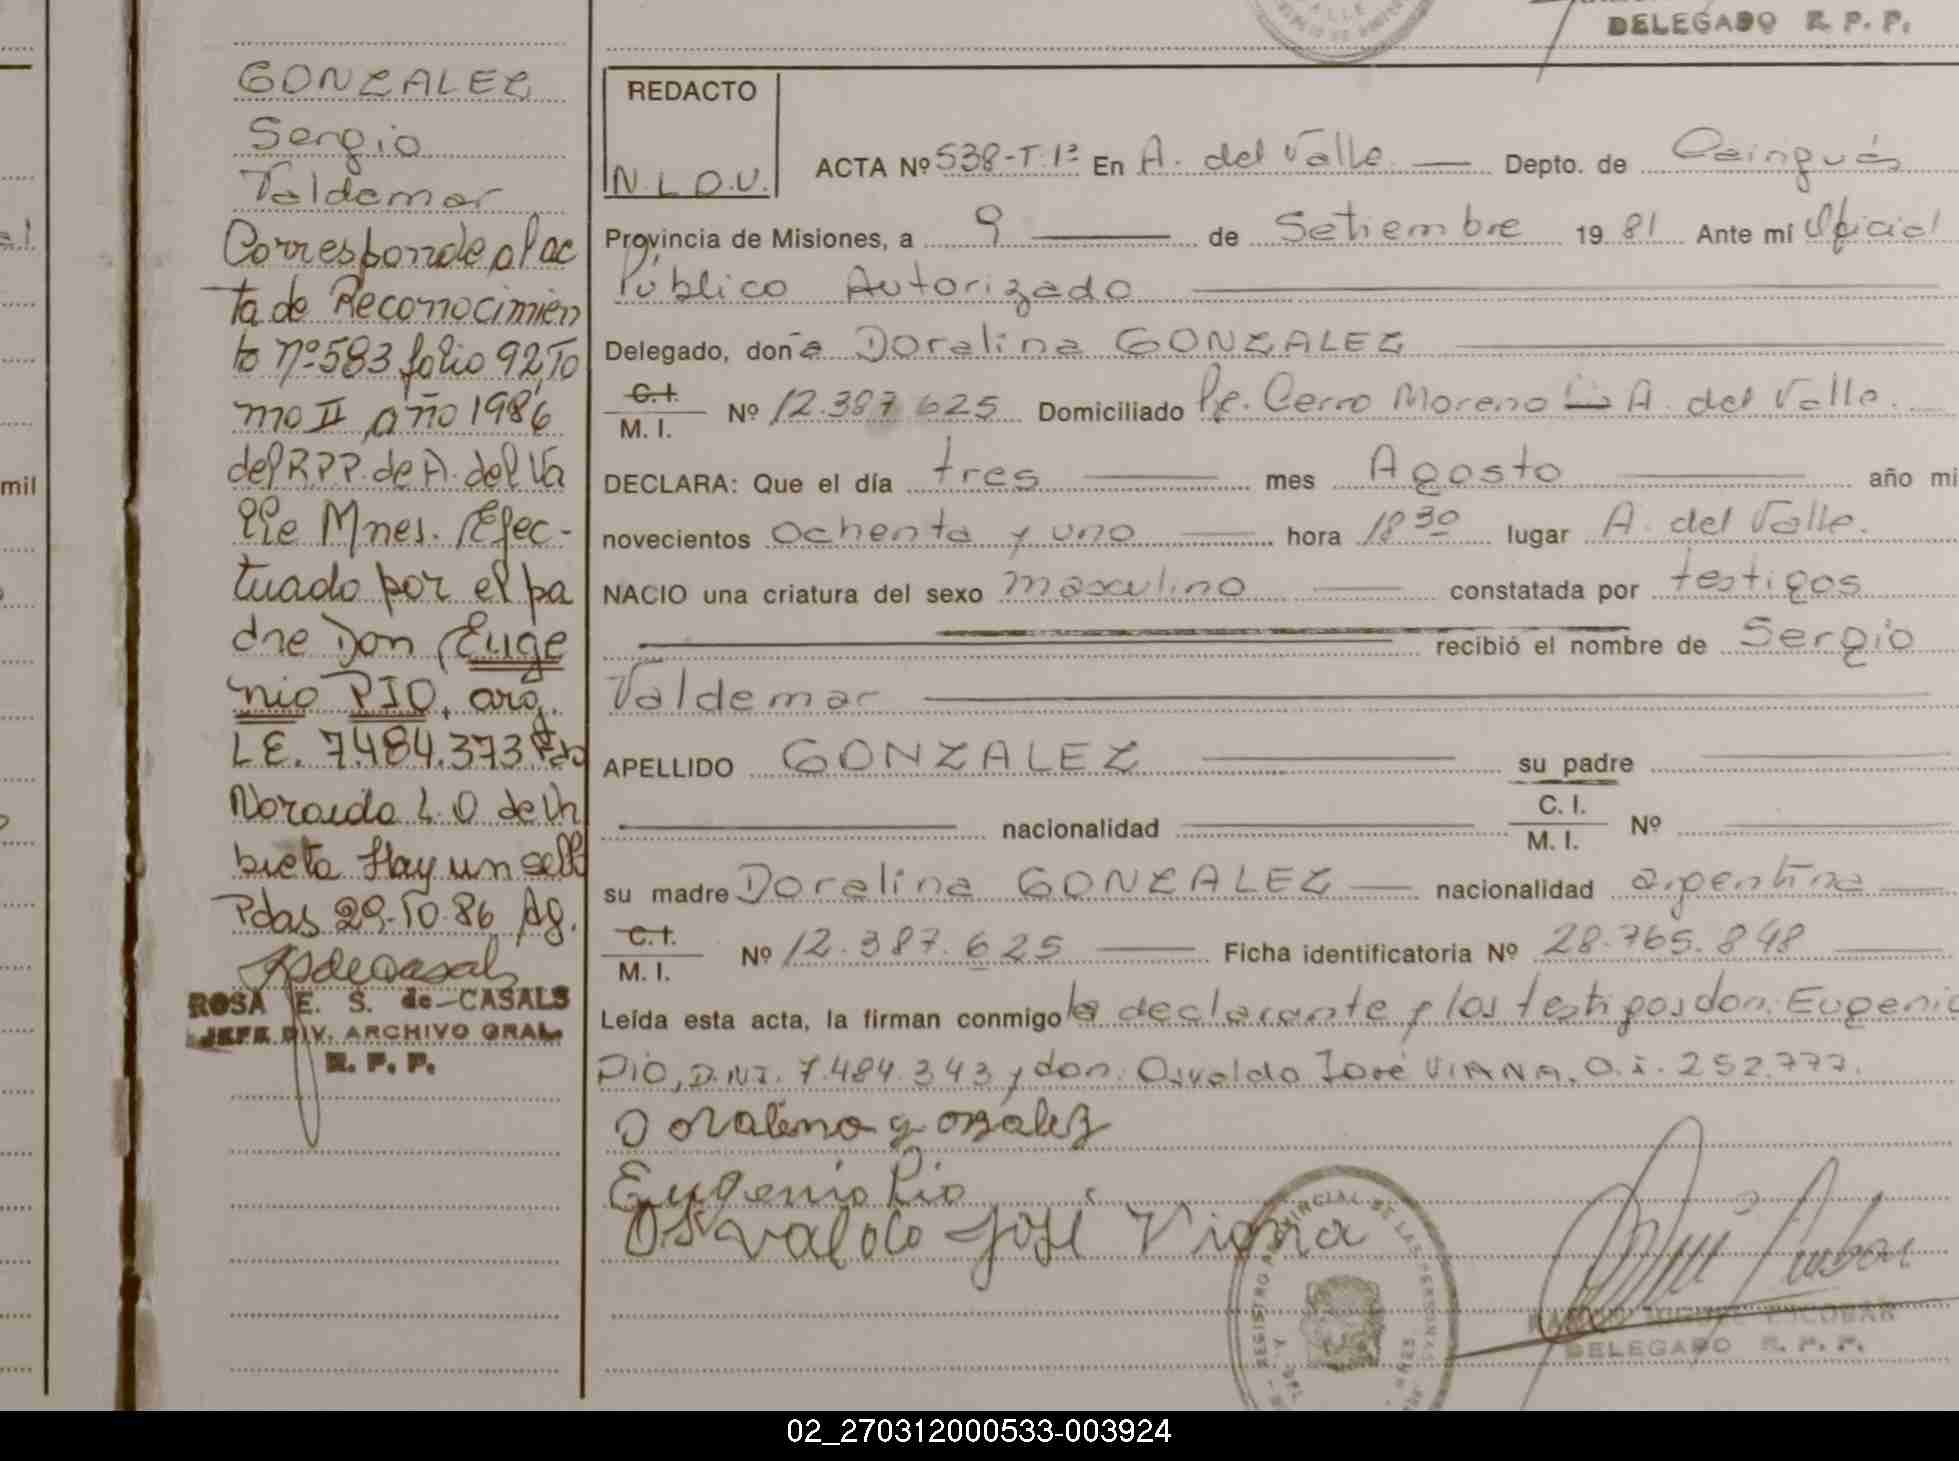 DELEGADO R. P. P.
GONZALEZ
Sergio
Valdemar
Corresponde al ac
ta de Reconocimien
to nº 583 folio 92, To
mo II año 1986
del R.P.P. de A. del Va
lle Mnes. Efec-
tuado por el pa
dre Don Euge
nio PIO, arg.
L.E. 7.484.373 Fdo
Noraida L. O. de Ur
bieta Hay un sello
Pdas 29-10-86 Ag.
ROSA E. S. de CASALS
JEFE DIV. ARCHIVO GRAL.
R. P. P.
REDACTO
N.L.D.U.
ACTA Nº 538-T.1º En A. del Valle Depto. de Cainguás
Provincia de Misiones, a 9 de Setiembre 19 81 Ante mí Oficial
Público Autorizado
Delegado, doña Doralina GONZALEZ
C.I.
M. I. Nº 12.387.625 Domiciliado Pje. Cerro Moreno A. del Valle.
DECLARA: Que el día tres mes Agosto año mi
novecientos ochenta y uno hora 18 30 lugar A. del Valle.
NACIO una criatura del sexo masculino constatada por testigos
recibió el nombre de Sergio
Valdemar
APELLIDO GONZALEZ su padre
nacionalidad C. I.
M. I. Nº
su madre Doralina GONZALEZ nacionalidad argentina
C.I.
M. I. Nº 12.387.625 Ficha identificatoria Nº 28.765.848
Leída esta acta, la firman conmigo la declarante y los testigos don: Eugenio
PIO, D.N.I. 7.484.343 y don: Osvaldo José VIANA, C.I. 252.777.
Doralina gonzalez
Eugenio Pio
Osvaldo José Viana
REGISTRO PROVINCIAL DE LAS PERSONAS
ESCOBAR
DELEGADO R. P. P.
02_270312000533-003924